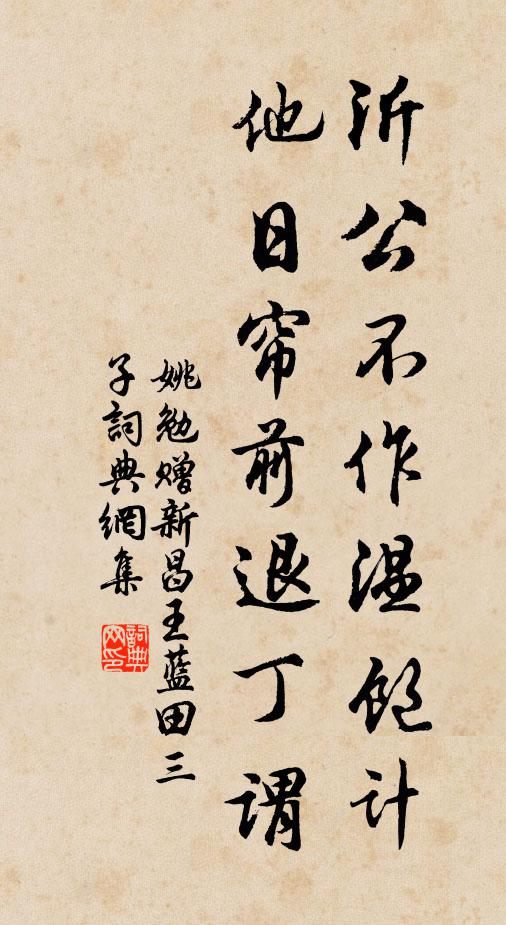 沂公不作温飽计
他日帘前退丁谓
姚勉赠新昌王藍田三
子詞典網集
詞典
网印